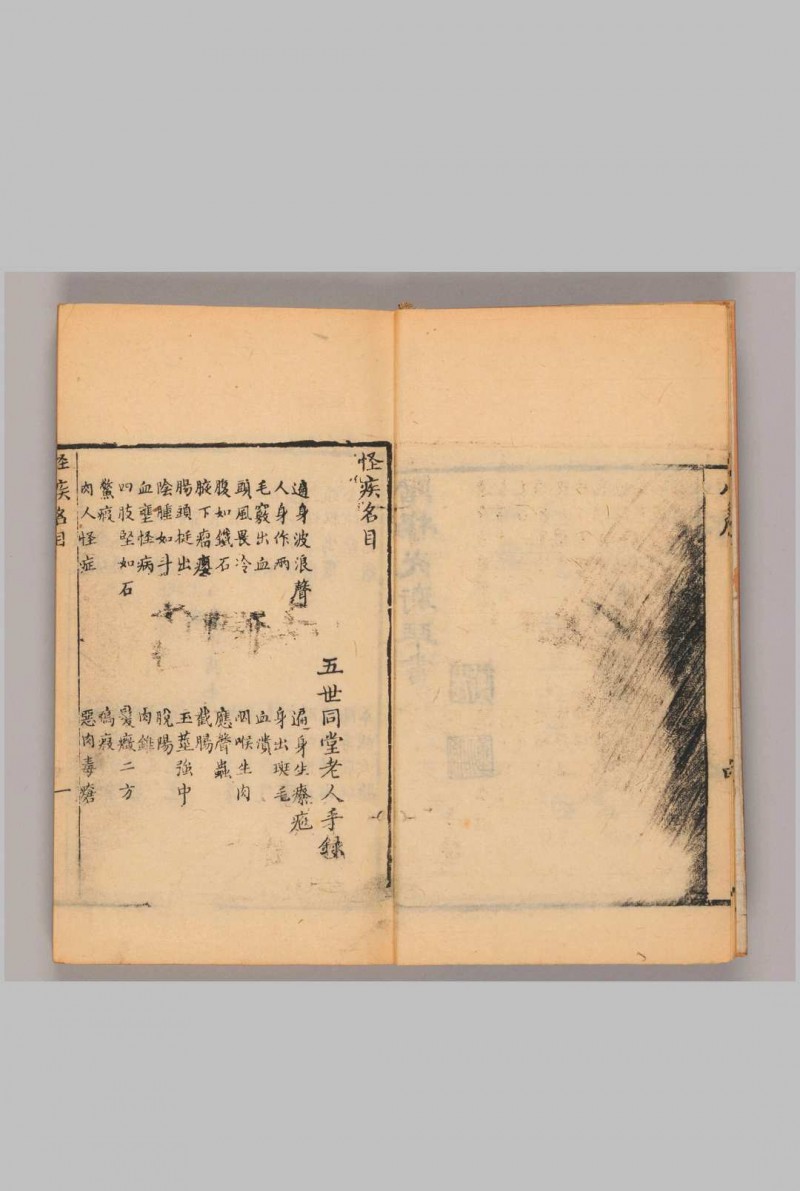 怪疾名目
五世同堂老人手錄
遍身波浪聲　遍身生燎疱
人身作兩　身出斑毛
毛竅出血　血潰
頭風畏冷　咽喉生肉
腹如鐵石　應聲蟲
腋下瘤癭　截腸
腸頭挺出　玉莖強中
陰腫如斗　脫陽
血壅怪病　肉錐
四肢堅如石　髮癥二方
鱉瘕　鴿瘕
肉人怪症　惡肉毒瘡
怪疾名目　一